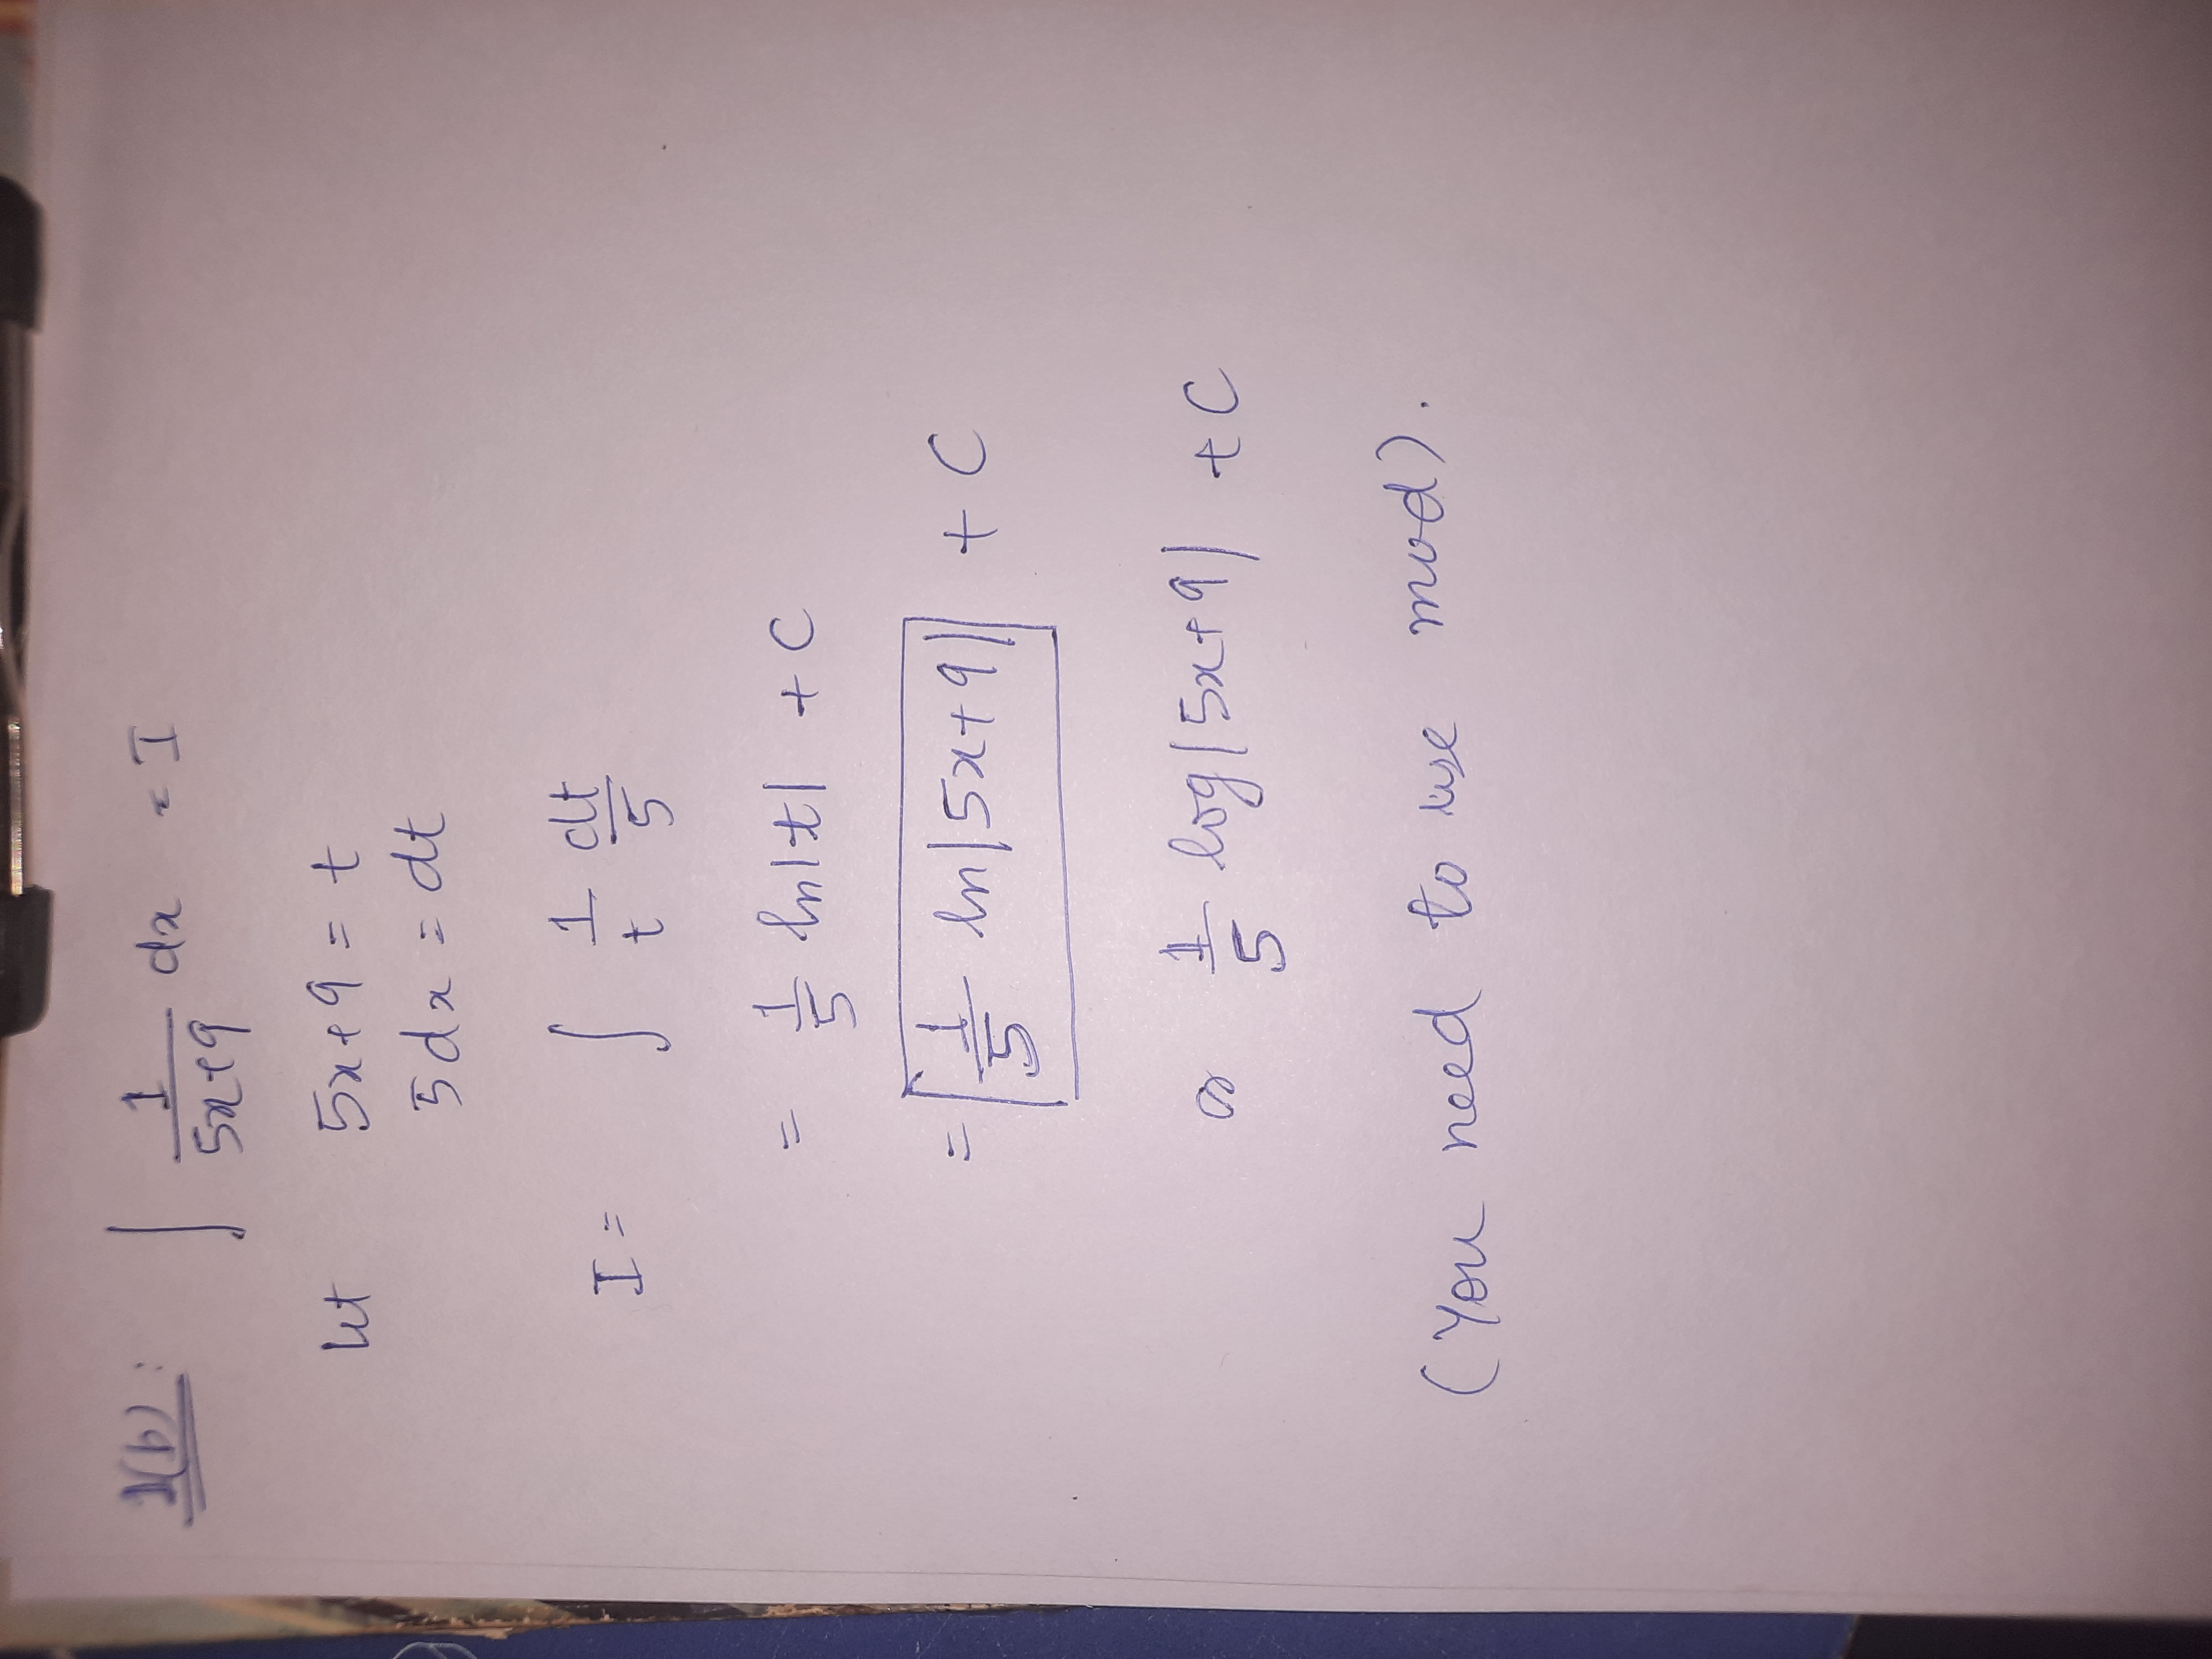 1(b): ∫ 1/(5x+9) dx = I
let 5x+9 = t
5dx = dt
I = ∫ 1/t dt/5
= 1/5 ln|t| + C
= 1/5 ln|5x+9| + C
or 1/5 log|5x+9| + C
(You need to use mod).